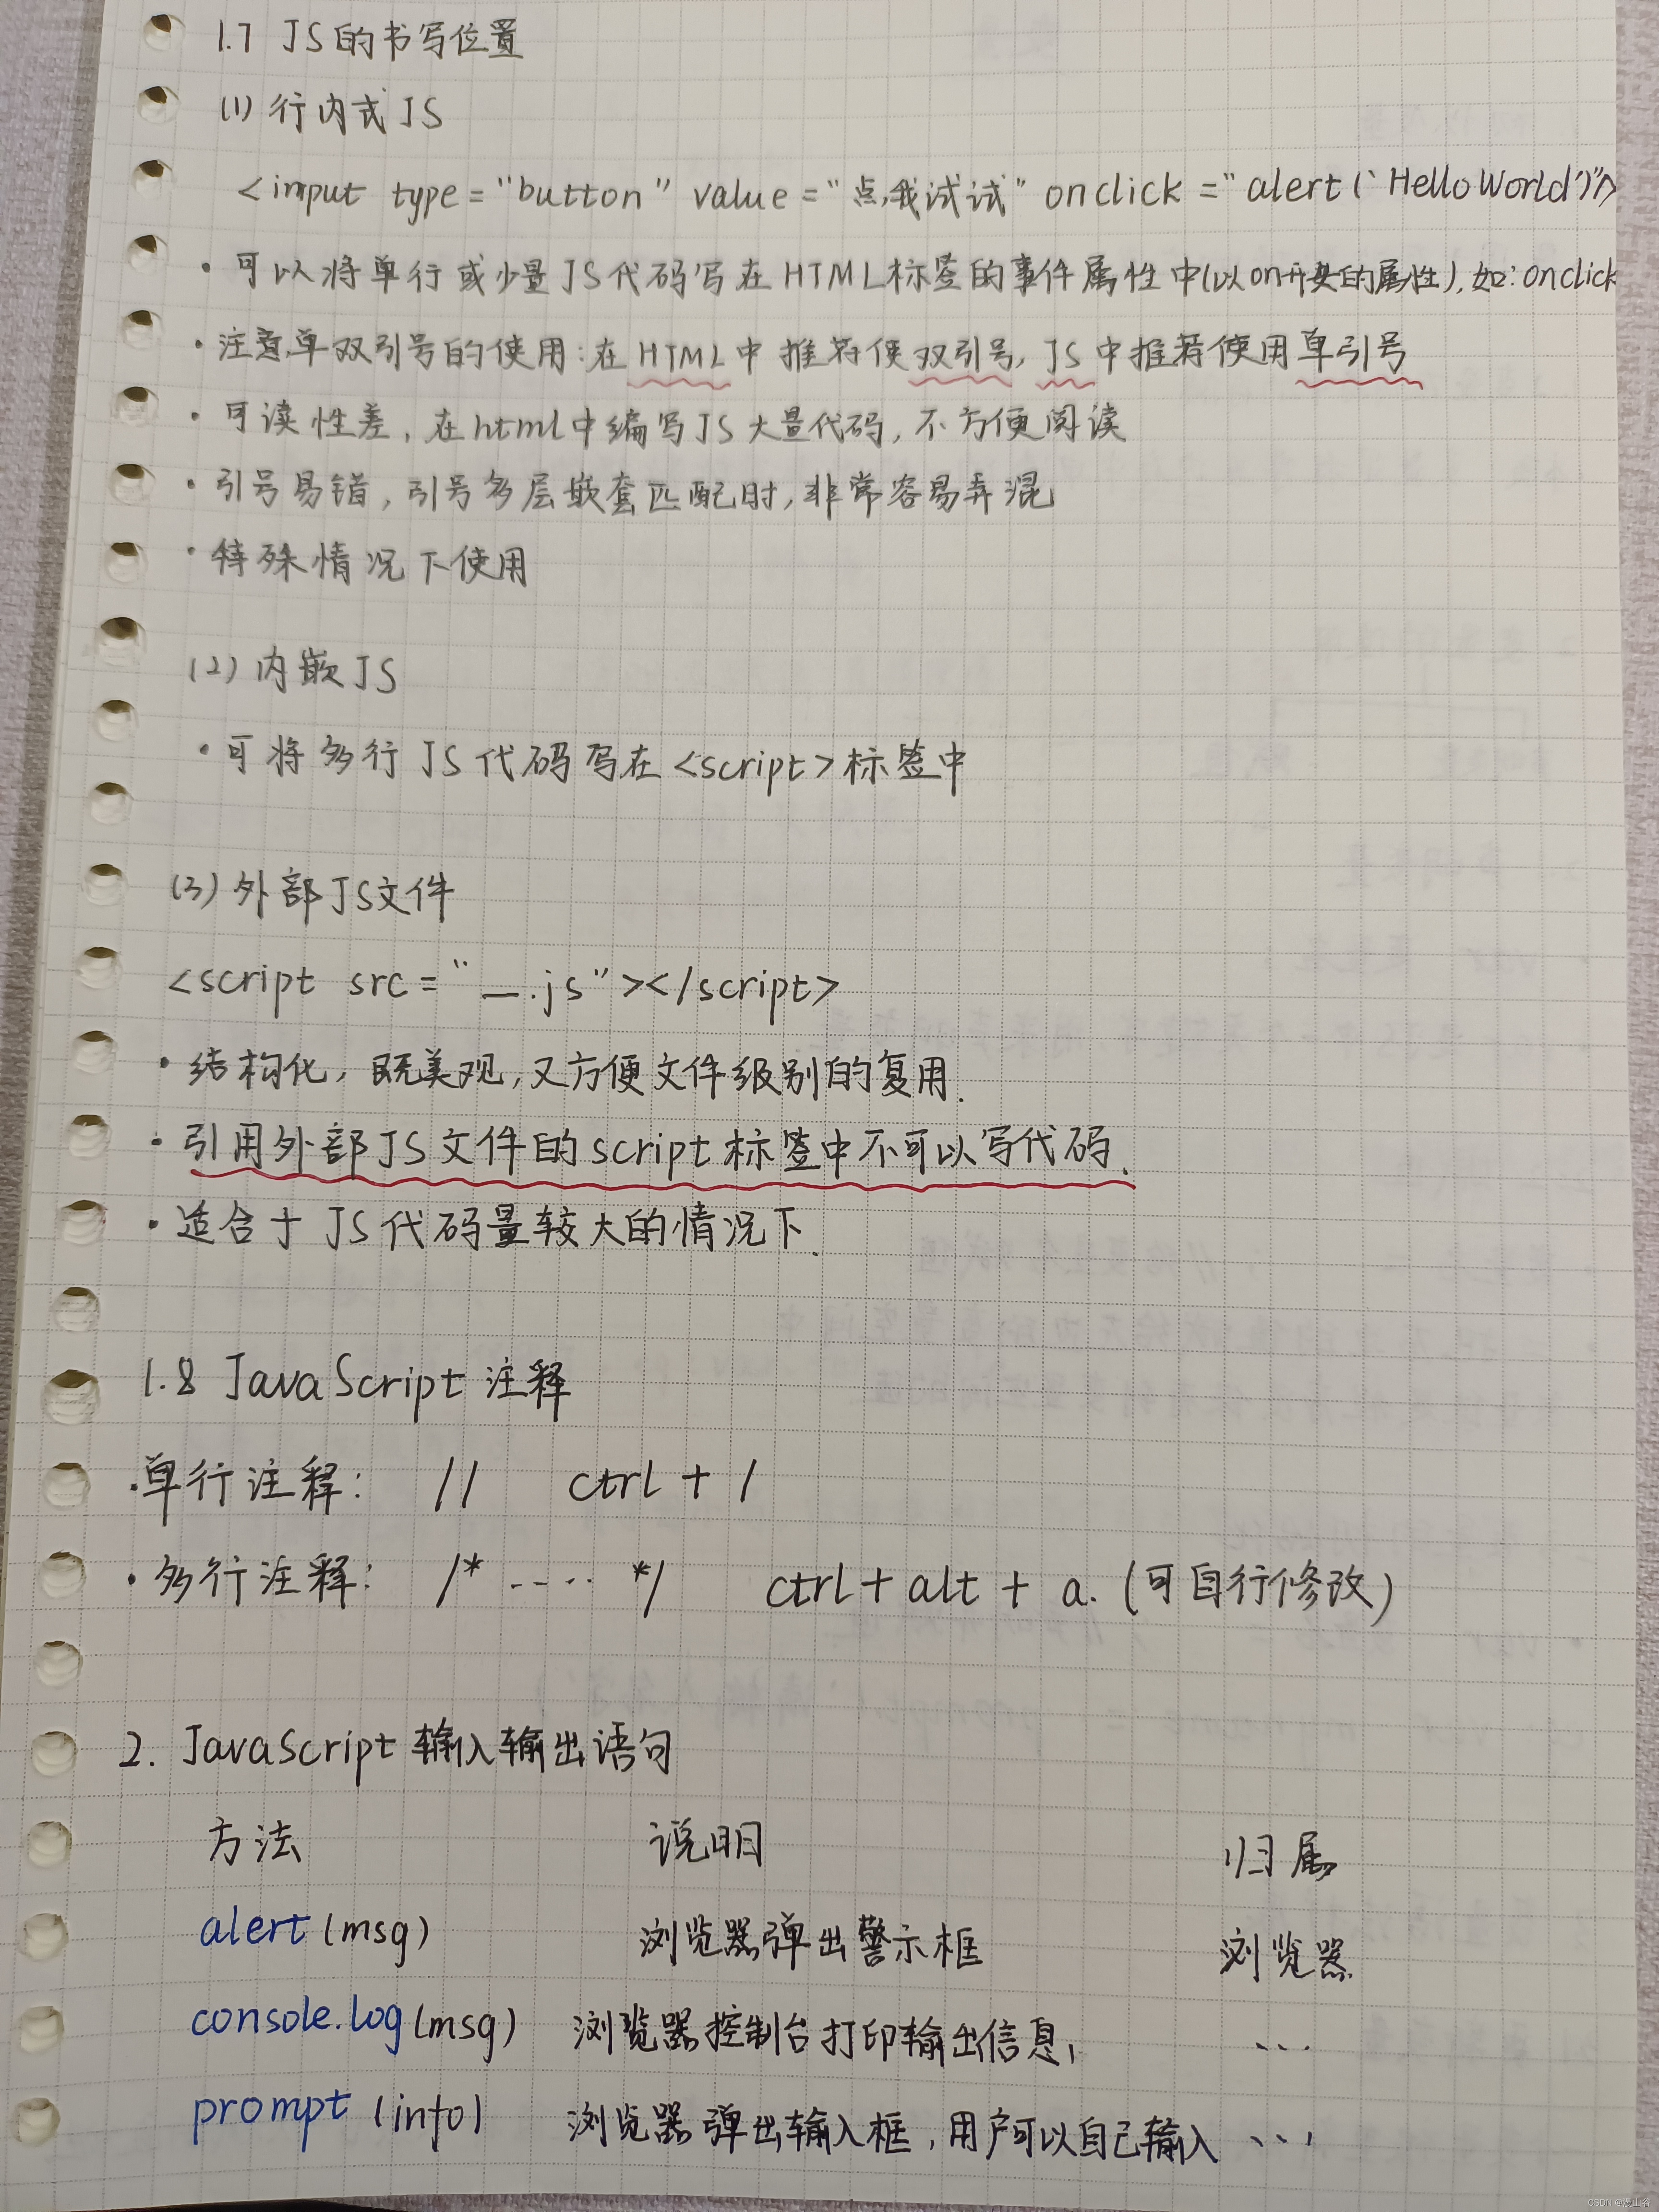 1.7 JS的书写位置
(1) 行内式JS
<input type="button" value="点我试试" onclick="alert('Hello World')"/>
· 可以将单行或少量JS代码写在HTML标签的事件属性中(以on开头的属性),如:onclick
· 注意单双引号的使用:在HTML中推荐使双引号,JS中推荐使用单引号
· 可读性差,在html中编写JS大量代码,不方便阅读
· 引号易错,引号多层嵌套匹配时,非常容易弄混
· 特殊情况下使用
(2) 内嵌JS
· 可将多行JS代码写在<script>标签中
(3) 外部JS文件
<script src="__.js"></script>
· 结构化,既美观,又方便文件级别的复用.
· 引用外部JS文件的script标签中不可以写代码.
· 适合于JS代码量较大的情况下.
1.8 JavaScript 注释
·单行注释: // ctrl + /
· 多行注释: /* .... */ ctrl + alt + a. (可自行修改)
2. JavaScript 输入输出语句
方法 说明 归属
alert(msg) 浏览器弹出警示框 浏览器
console.log(msg) 浏览器控制台打印输出信息, ...
prompt(info) 浏览器弹出输入框,用户可以自己输入 ...
CSDN @漫山谷